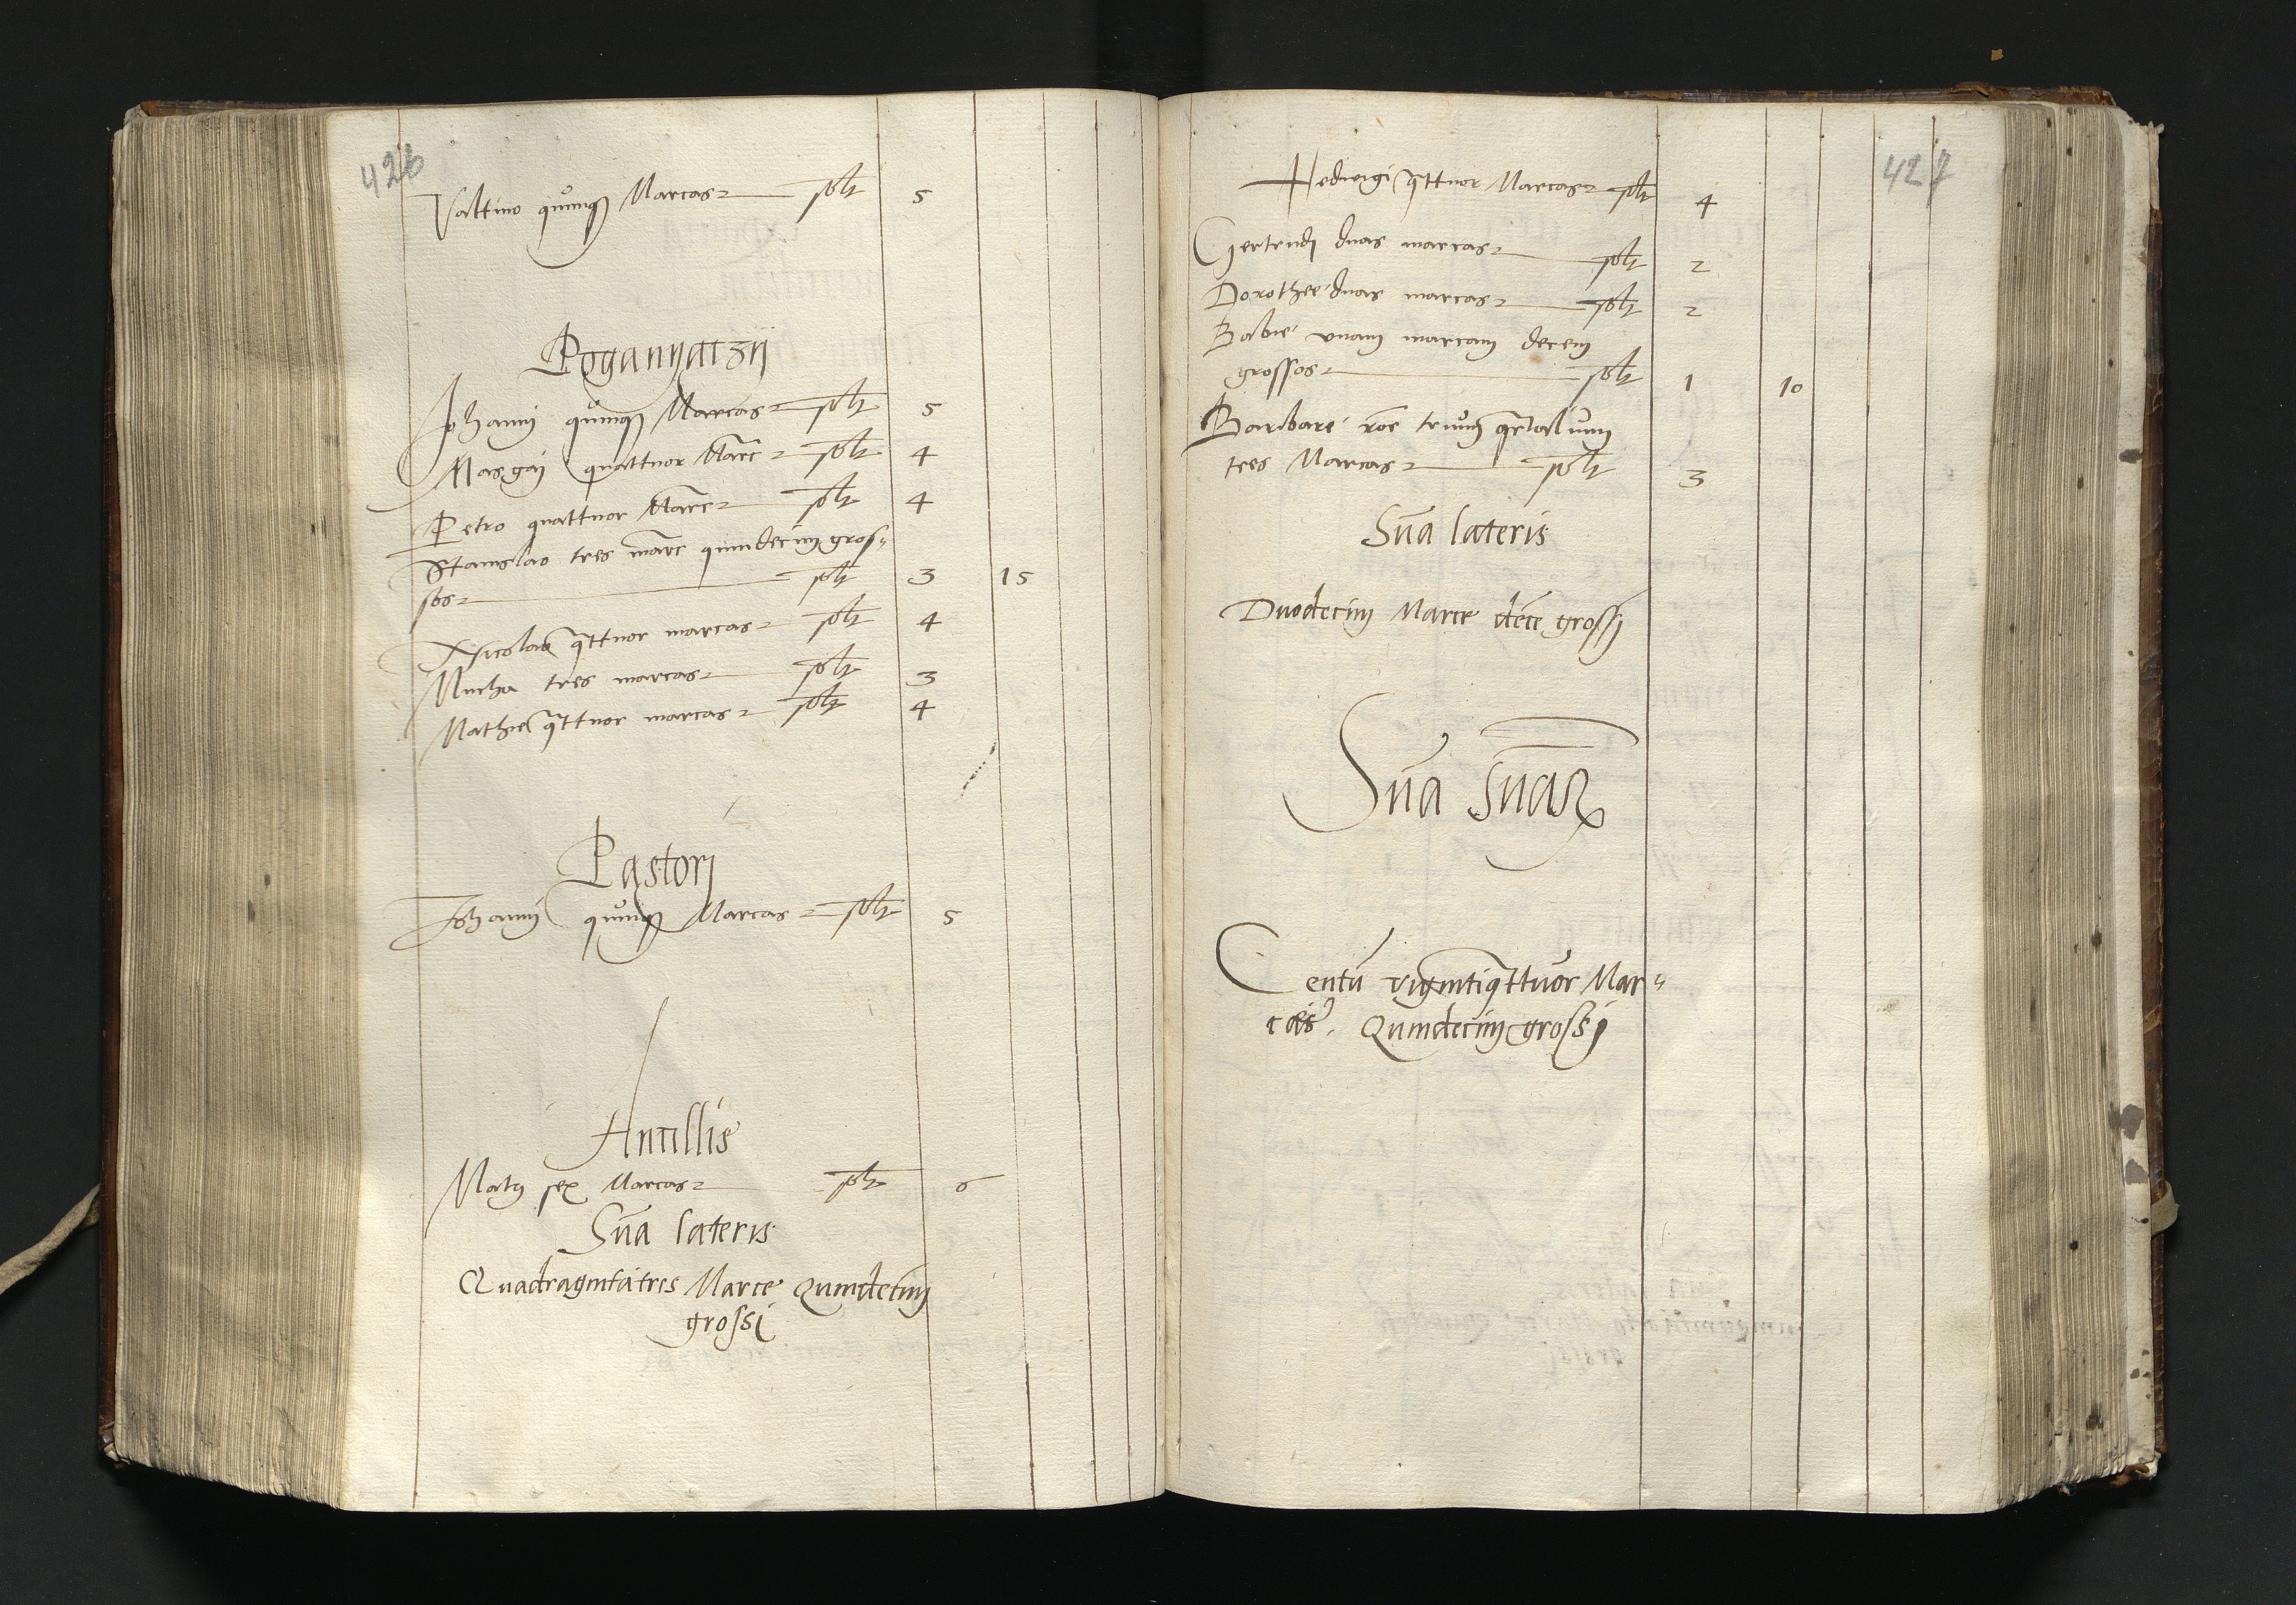 426
Valtino quinq3 Marcas solt 5
Pogannatzy
Johanni quinq3 Marcas solt 5
Masgai quattuor Marc solt 4
Petro quattuor Marc solt 4
Stanislao tres marc quindecim gros„
sos solt 3 15
Nicolao qattuor marcas solt 4
Micha tres marcas solt 3
Mathie qattuor marcas solt 4
Pastorj
Johanni quinq3 Marcas solt 5
Ancillis
sex Marcas solt 6
Sūa lateris
Quadragintatres Marce Quindecim
grossi
427
Hedwigi qattuor Marcas solt 4
Gertrudj duas marcas solt 2
Dorothee duas marcas solt 2
Babie unam marcam decem
grossos solt 1 10
Barbare roē trium qrtaliuum
tres Marcas solt 3
Sūa lateris
Duodecim Marce decē grossj
Sūa sūaꝝ
Centū vigintiqattuor Mar„
Quindecim grossj